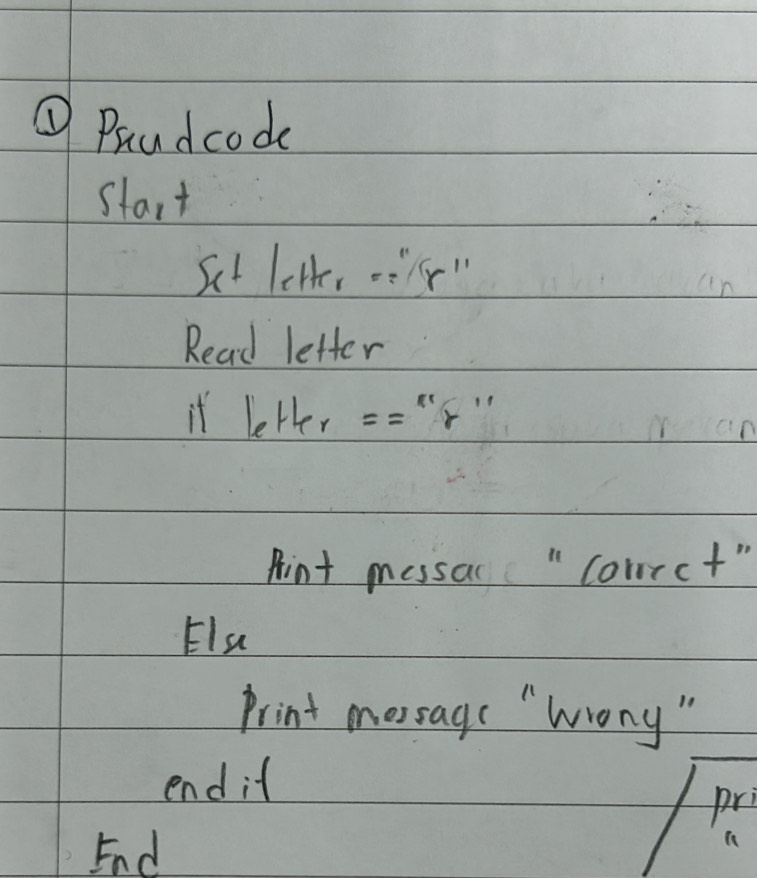 ① Pseudcode
Start
Set letter == "r"
Read letter
if letter == "r"
Print messag "Correct"
Else
Print message "Wrong"
end if
pri
End